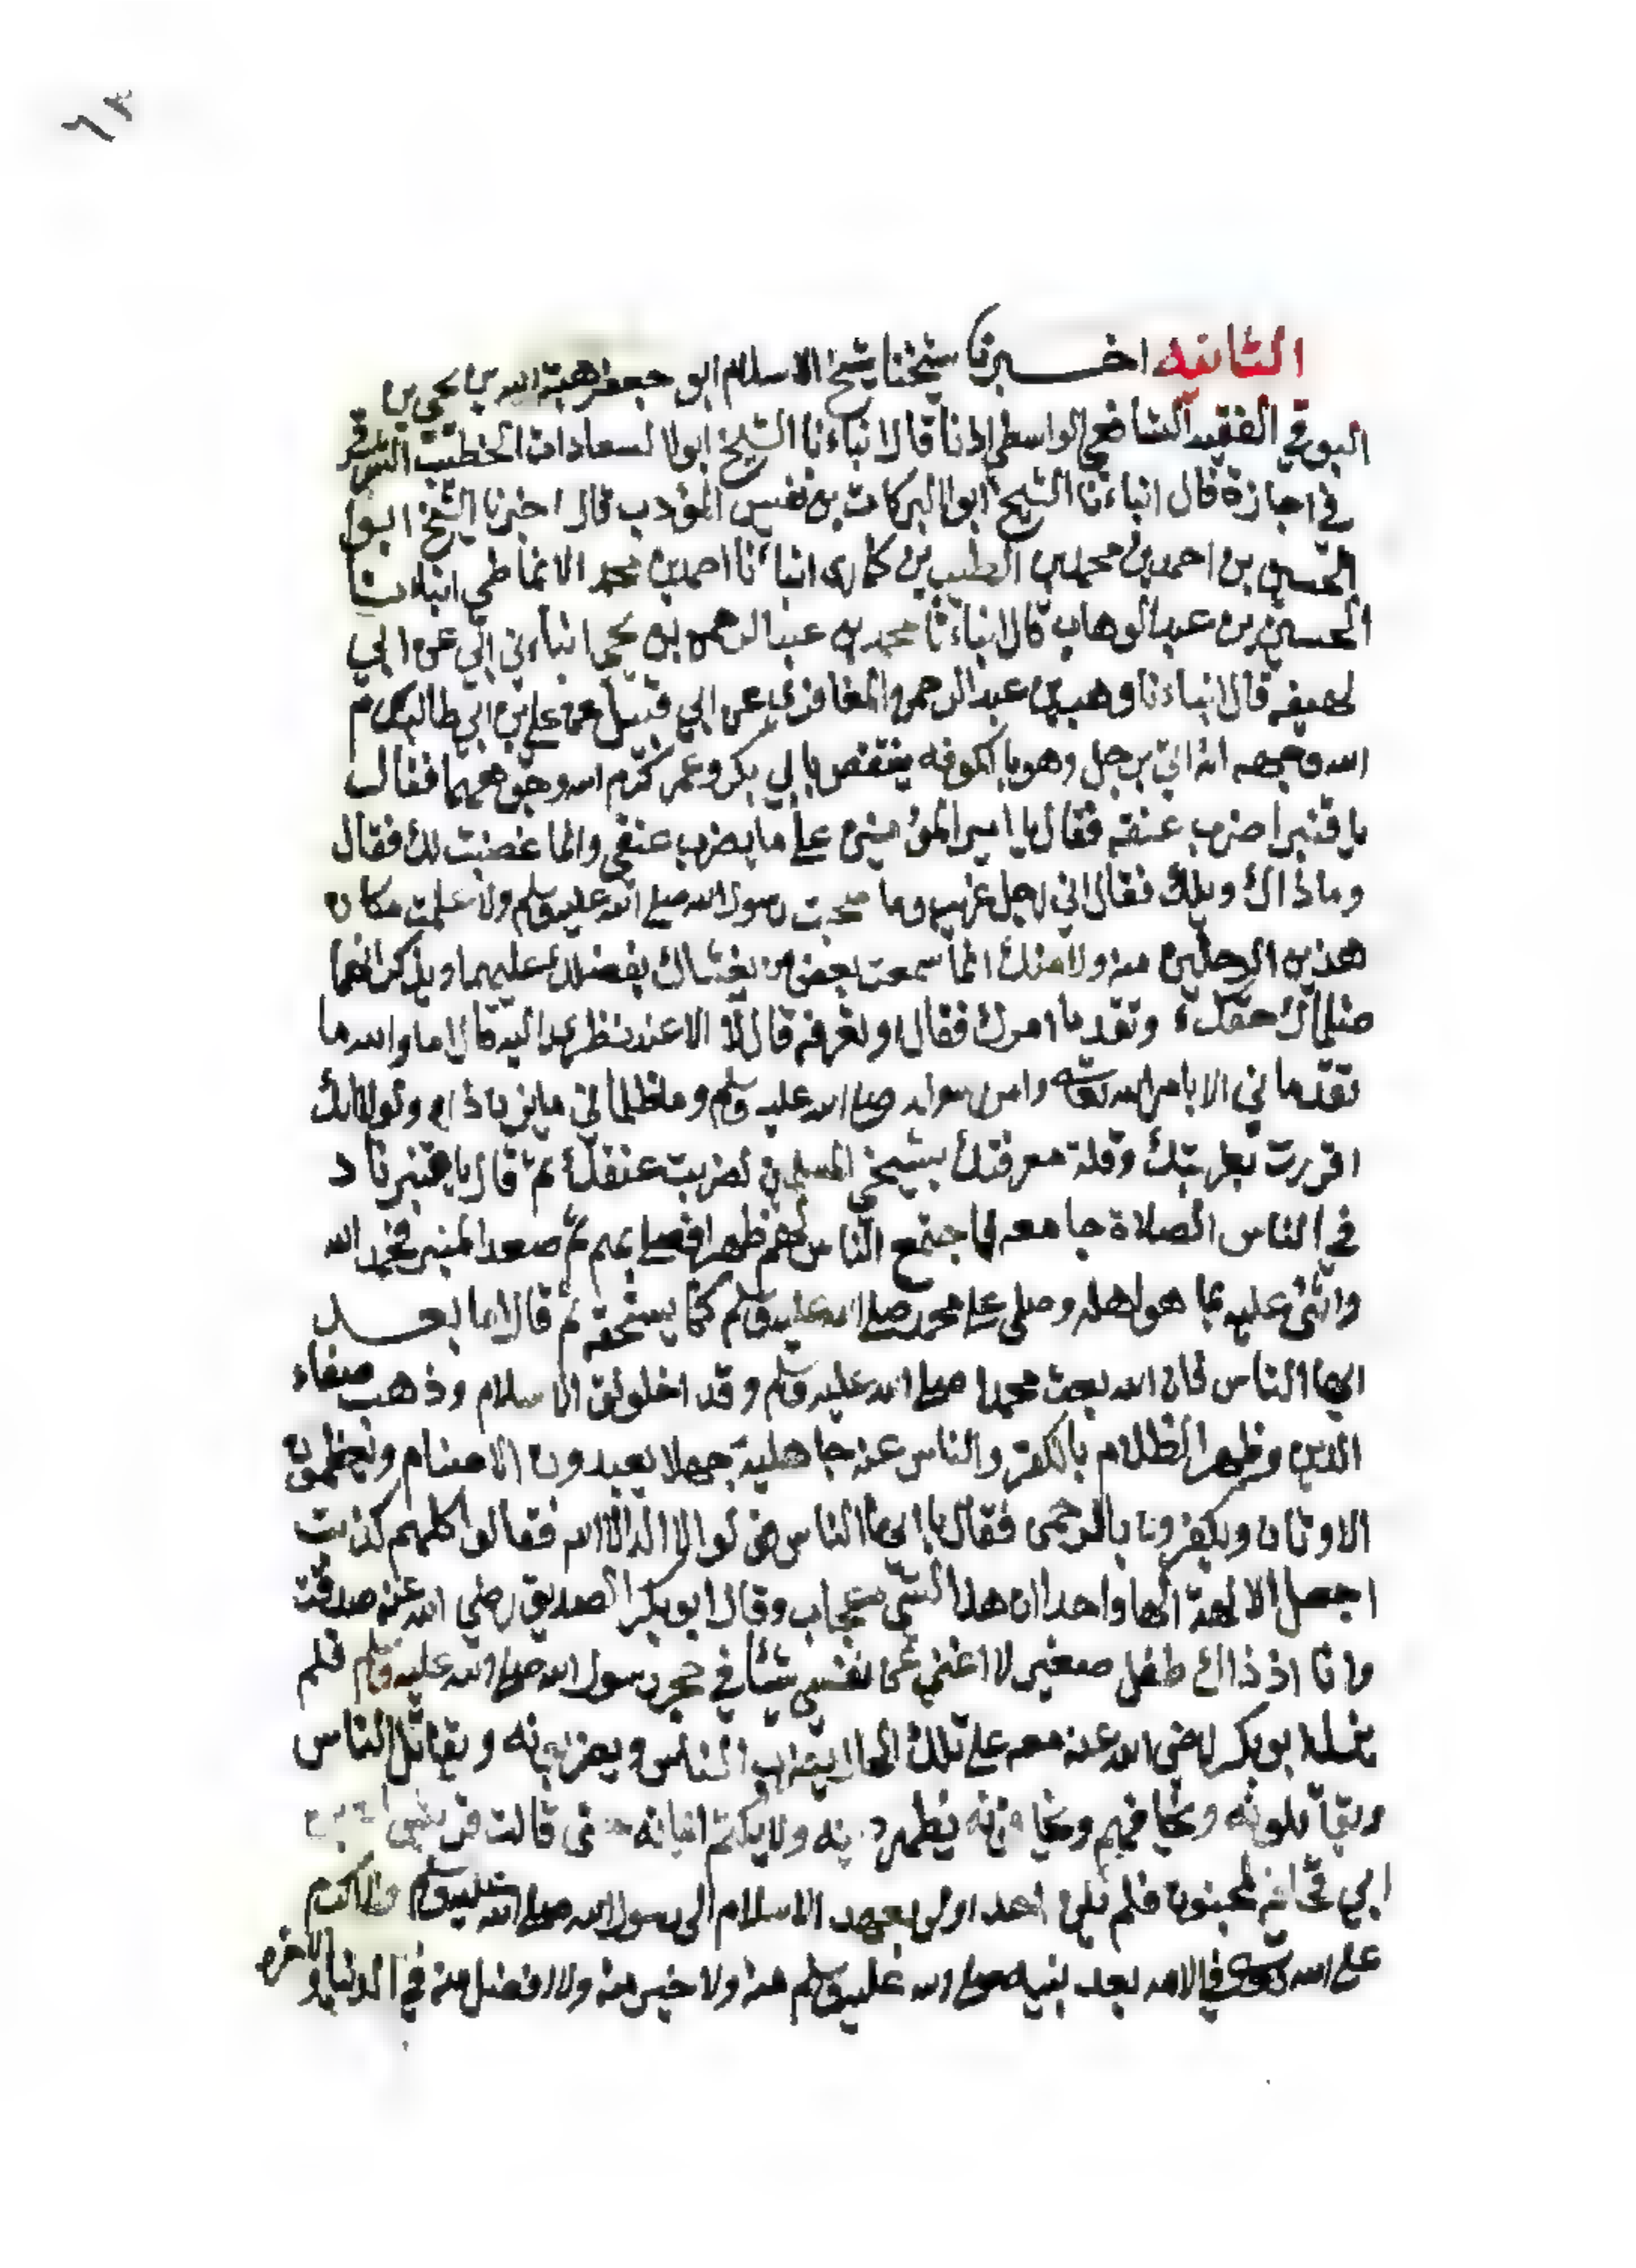 ٦٣
الثانيه اخبرنا شيخنا شيخ الاسلام ابو جعفر هبة الله بن يحيى بن
البوقي الفقيه الشافعي الواسطي اذنا قال انباءنا الشيخ ابو السعادات الخطيب
في اجازة قال انباءنا الشيخ ابوا البركات بن نفيس المؤدب قال اخبرنا الشيخ ابوا
الحسين بن احمد بن محمد بن الطيب بن كماري انباءنا احمد بن محمد الانماطي انباءنا
الحسين بن عبد الوهاب قال انباءنا محمد بن عبد الرحمن بن يحيى انباءني ابي عن ابي
لهيعه قال انباءنا وهب بن عبد الرحمن المغافري عن ابي قتيل عن علي بن ابي طالب كرم
الله وجهه انه اتي برجل وهو بالكوفه ينتقص بابي بكر وعمر كرم الله وجوههما فقال
يا قنبر اضرب عنقه فقال يا امير المؤمنين على ما يضرب عنقي وانما غضبت لك فقال
وما ذاك ويلك فقال اني رجل غريب وما صحبت رسول الله صلى الله عليه وسلم ولا علمت مكان
هذين الرجلين منه ولا منك انما سمعت بعض من يغشاك يفضلك عليهما ويذكر انهما
ظلماك حقك وتقدما امرك فقال او تعرفه قال لا الا عند نظري اليه قال اما والله ما
تقدماني الا بامر الله تعالى وامر رسوله صلى الله عليه وسلم وما ظلماني ولولا انك
اقررت بغربتك وقلة معرفتك بشيخي المسلمين لضربت عنقك ثم قال يا قنبر ناد
في الناس الصلاة جامعه فاجتمع الناس ظهرا فصلى بهم ثم صعد المنبر فحمد الله
واثنى عليه بما هو اهله وصلى على محمد صلى الله عليه وسلم كما يستحقه ثم قال اما بعد
ايها الناس فان الله بعث محمدا صلى الله عليه وسلم وقد اخلولق الاسلام وذهب صفاء
الدين وظهر الظلام بالكفر والناس عنه جاهلية جهلا يعبدون الاصنام ويعظمون
الاوثان ويكفرون بالرحمن فقال يا ايها الناس قولوا لا اله الا الله فقالوا كلهم كذبت
اجعل الالهة الها واحدا ان هذا لشي عجاب وقال ابو بكر الصديق رضي الله عنه صدقت
وانا اذ ذاك طفل صغير لا اغني عن نفسي شيئا في حجر رسول الله صلى الله عليه وسلم فلم
يزل ابو بكر رضي الله عنه معه على تلك الحال الناس ويقاتل الناس
ويقاتلونه ويخافهم ويخافونه يظهر دينه ولا يكتم ايمانه حتى قالت قريش
ابي قحافه لمجنون فلم احد اولى بعهد الاسلام الى رسول الله صلى الله عليه وسلم ولا اكرم
على الله تعالى في الامه بعد نبيه صلى الله عليه وسلم منه ولا خير منه ولا افضل منه في الدنيا والاخره